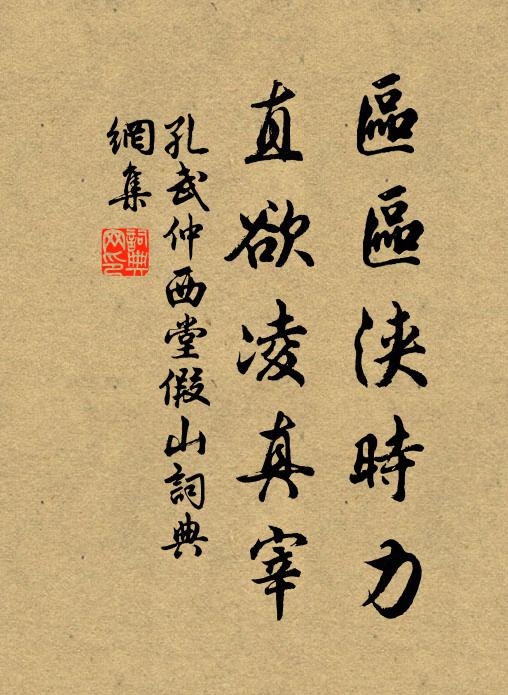 區區浹時力
直欲凌真宰
孔武仲西堂假山詞典
網集
詞典
网印